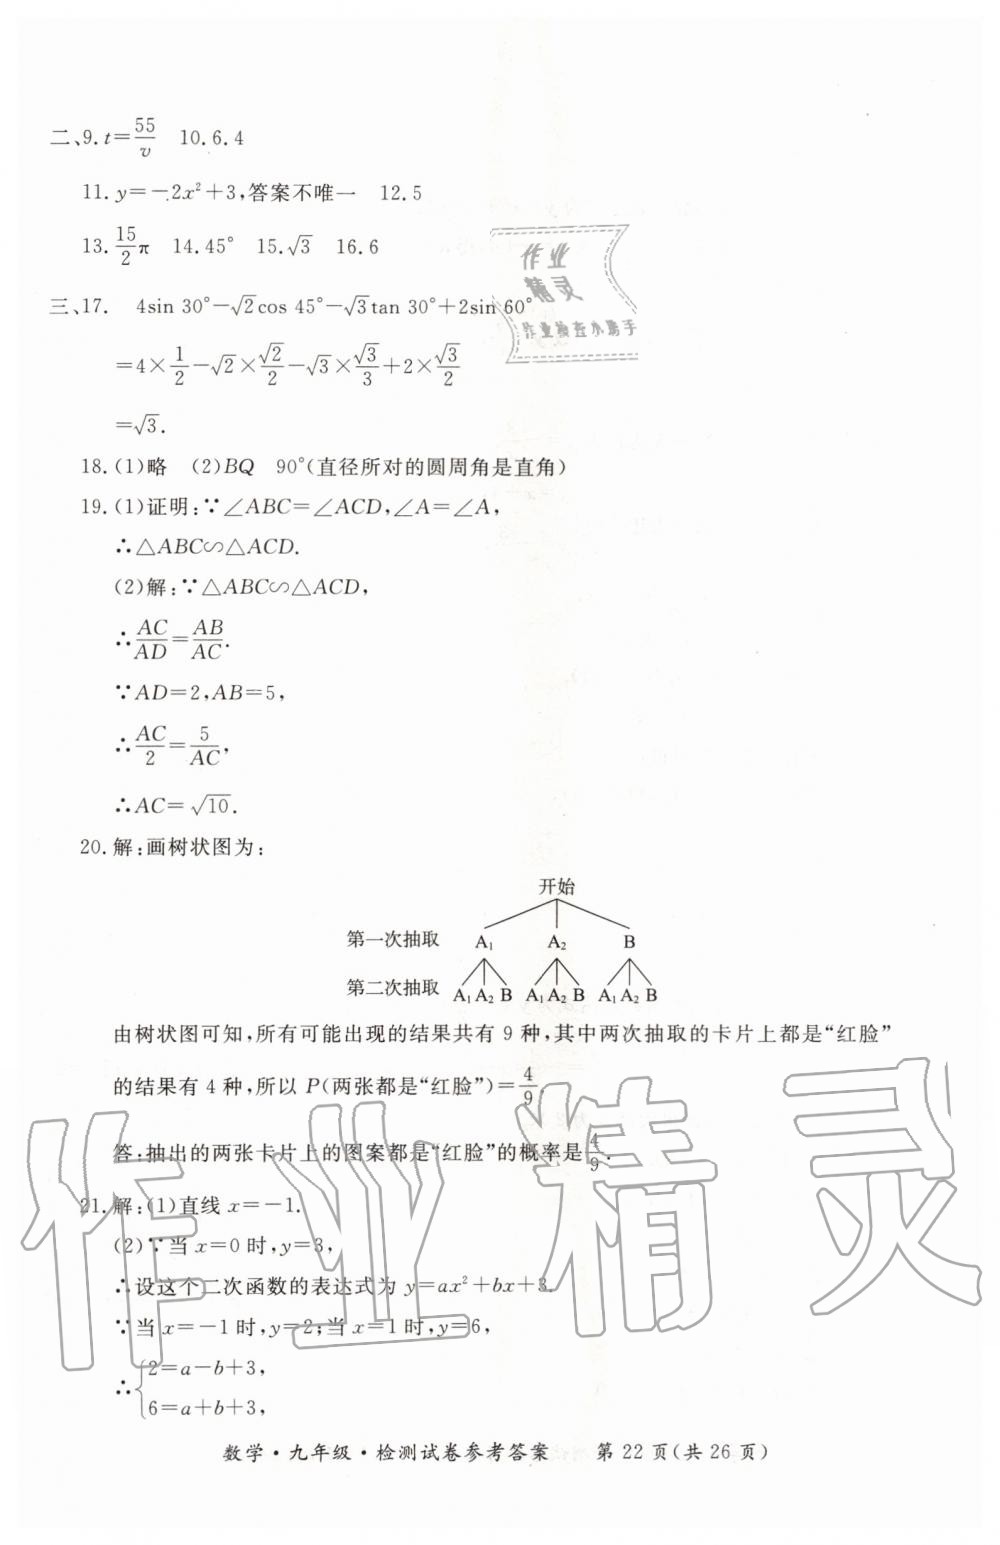 二、9. t=55/v　10. 6.4
11. y=-2x²+3,答案不唯一　12. 5
13. 15/2 π　14. 45°　15. √3　16. 6
作业
精灵
作业检查小助手
三、17.　4sin 30°-√2cos 45°-√3tan 30°+2sin 60°
=4×1/2-√2×√2/2-√3×√3/3+2×√3/2
=√3.
18. (1)略　(2)BQ　90°(直径所对的圆周角是直角)
19. (1)证明:∵∠ABC=∠ACD,∠A=∠A,
∴△ABC∽△ACD.
(2)解:∵△ABC∽△ACD,
∴AC/AD=AB/AC.
∵AD=2,AB=5,
∴AC/2=5/AC,
∴AC=√10.
20. 解:画树状图为:
开始
第一次抽取　A₁　A₂　B
第二次抽取　A₁ A₂ B　A₁ A₂ B　A₁ A₂ B
由树状图可知,所有可能出现的结果共有 9 种,其中两次抽取的卡片上都是“红脸”
的结果有 4 种,所以 P(两张都是“红脸”)=4/9.
答:抽出的两张卡片上的图案都是“红脸”的概率是4/9.
21. 解:(1)直线 x=-1.
(2)∵当 x=0 时,y=3,
∴设这个二次函数的表达式为 y=ax²+bx+3.
∵当 x=-1 时,y=2;当 x=1 时,y=6,
∴{2=a-b+3,
6=a+b+3,
作业精灵
数学·九年级·检测试卷参考答案　第 22 页(共 26 页)